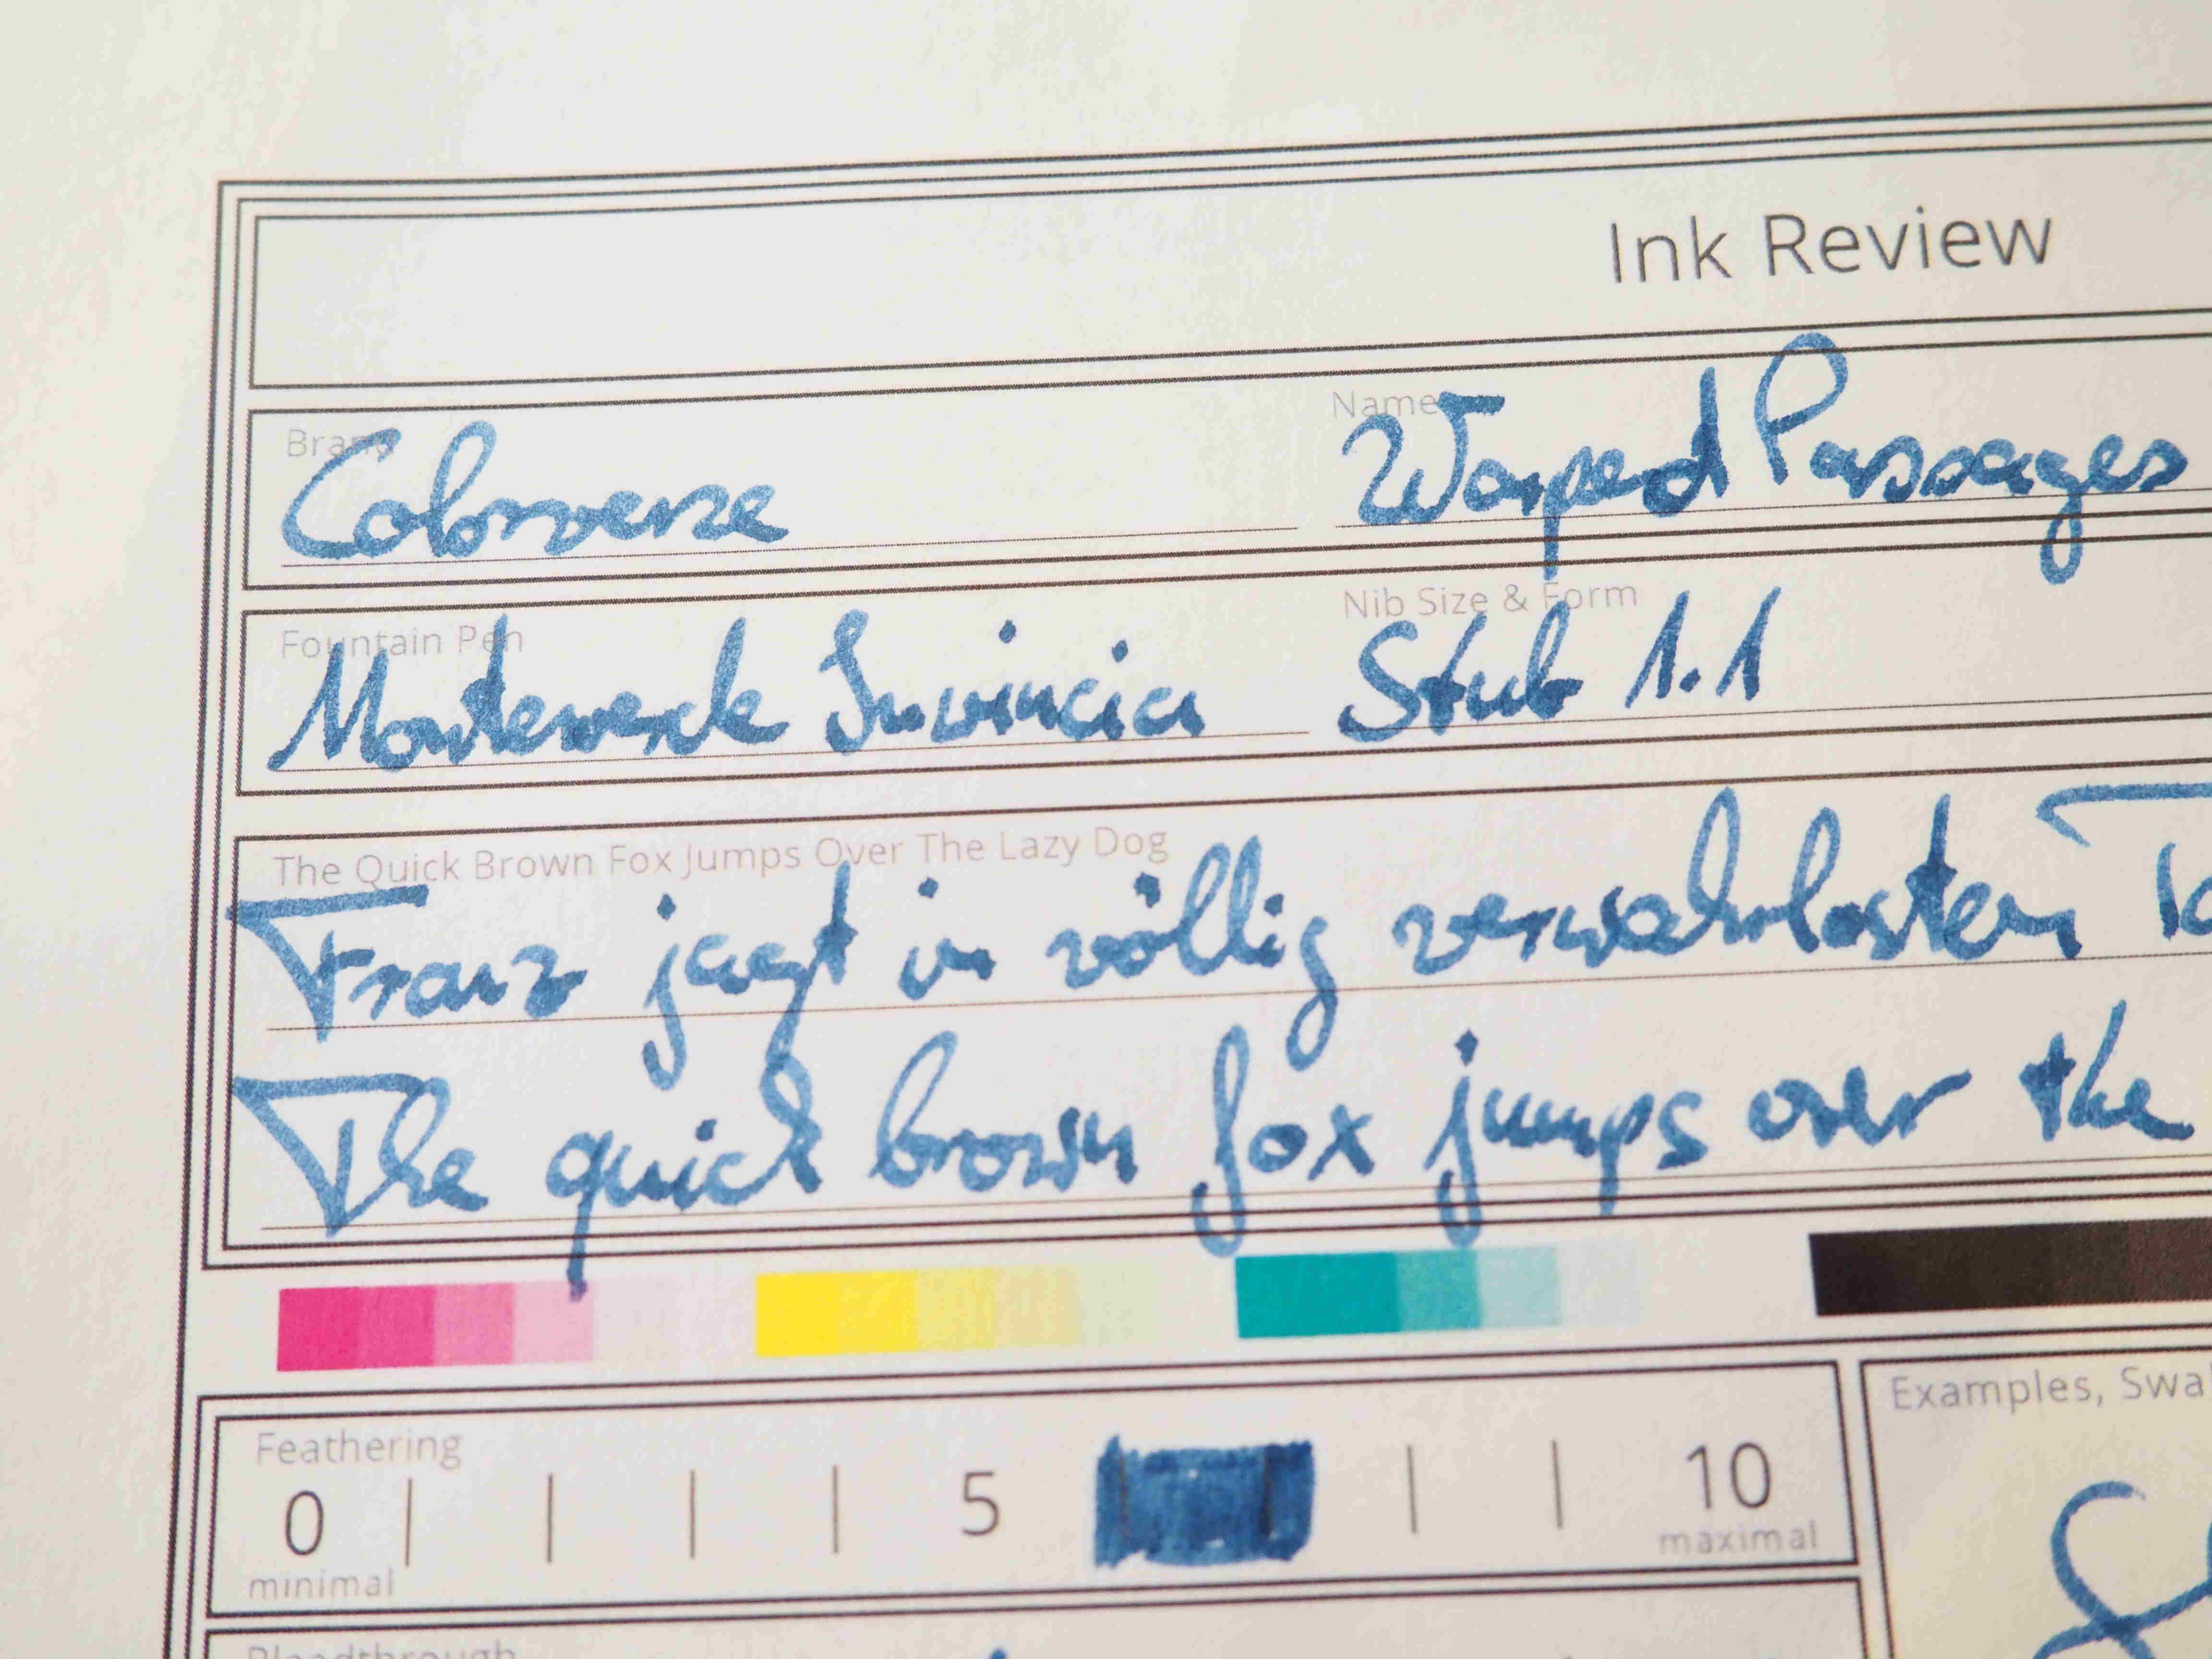 Ink Review
Brand Name
Colorverse Warped Passages
Fountain Pen Nib Size & Form
Monteverde Invincia Stub 1.1
The Quick Brown Fox Jumps Over The Lazy Dog
Franz jagt in völlig verwahrlosten
The quick brown fox jumps over the
Feathering Examples, Swa
0 5 10
minimal maximal
Bleedthrough